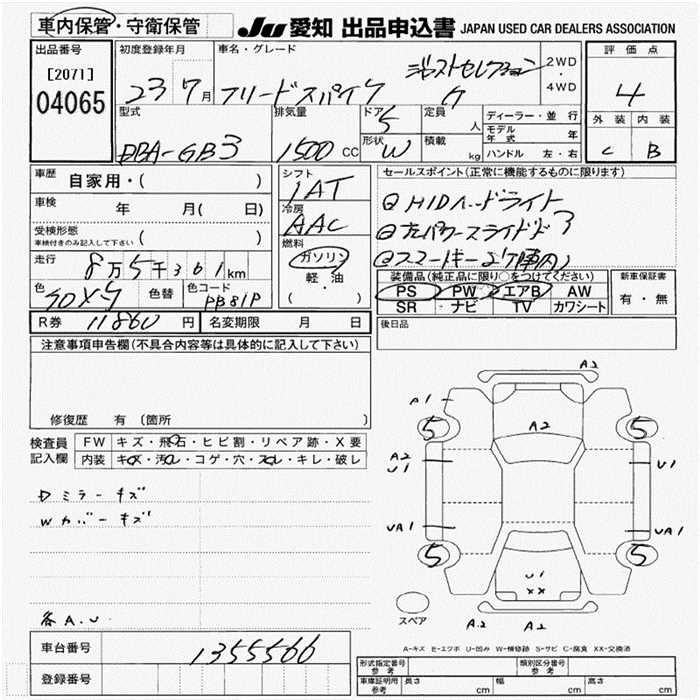 車内保管・守衛保管
JU 愛知 出品申込書 JAPAN USED CAR DEALERS ASSOCIATION
出品番号
[2071]
04065
初度登録年月
23 7月
車名・グレード
フリードスパイク
ジャストセレクション
2WD
・
4WD
評価点
4
外装 内装
C B
型式
DBA-GB3
排気量
1500 CC
ドア
5
形状
W
定員
人
積載
kg
ディーラー・並行
モデル年式 年
ハンドル 左・右
車歴
自家用・( )
車検
年 月( 日)
受検形態
車検付きのみ記入して下さい ( )
走行
8万5千361km
色
色替
色コード
PB81P
シフト
1AT
冷房
AAC
燃料
ガソリン
軽・油
・( )
セールスポイント(正常に機能するものに限ります)
①HIDヘッドライト
装備品(純正品に限り○をつけてください)
PS PW エアB AW
SR ナビ TV カワシート
新車保証書
有・無
R券 11860 円
名変期限 月 日
後日品
注意事項申告欄(不具合内容等は具体的に記入して下さい)
修復歴 有 〔箇所
検査員
記入欄
FW キズ・飛石・ヒビ割・リペア跡・X要
内装 キズ・汚れ・コゲ・穴・スレ・キレ・破レ
Dミラーキズ
Wカバーキズ
各A.U
A2
A1
5
5
A2
A2
U1
U1
UA1
UA1
5
5
U1
XX
スペア
A.2
A2
A-キズ E-エクボ U-凹み W-補修跡 S-サビ C-腐食 XX-交換済
車台番号
1355566
登録番号
形式指定番号
参考
類別区分番号
参考
車庫証明用
参考
長さ cm
幅 cm
高さ cm